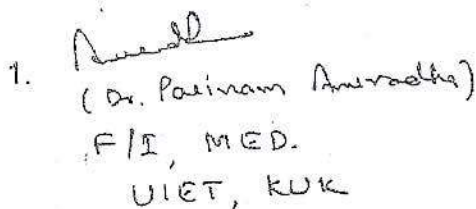 1.
(Dr. Parinam Anuradha)
F/I, MED.
UIET, KUK